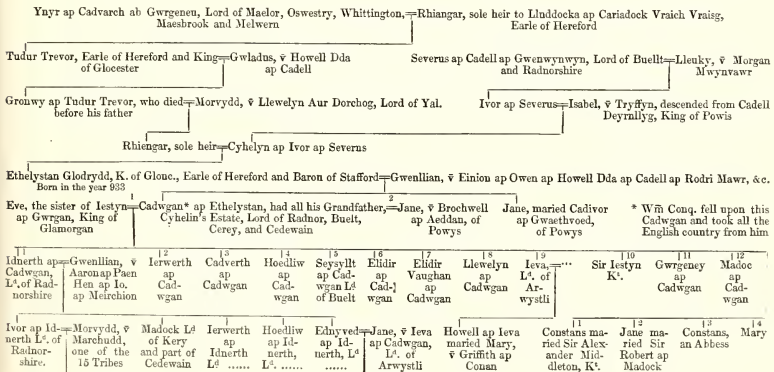 Ynyr ap Cadvarch ab Gwrgeneu, Lord of Maelor, Oswestry, Whittington,
Maesbrook and Melwern
Rhiangar, sole heir to Llnddocka ap Cariadock Vraich Vraisg,
Earle of Hereford
Tudur Trevor, Earle of Hereford and King
of Glocester
Gwladus, v̄ Howell Dda
ap Cadell
Severus ap Cadell ap Gwenwynwyn, Lord of Buellt
and Radnorshire
Lleuky, v̄ Morgan
Mwynvawr
Gronwy ap Tudur Trevor, who died
before his father
Morvydd, v̄ Llewelyn Aur Dorchog, Lord of Yal.
Ivor ap Severus
Isabel, v̄ Tryffyn, descended from Cadell
Deyrnllyg, King of Powis
Rhiengar, sole heir
Cyhelyn ap Ivor ap Severns
Ethelystan Glodrydd, K. of Glouc., Earle of Hereford and Baron of Stafford
Born in the year 933
Gwenllian, v̄ Einion ap Owen ap Howell Dda ap Cadell ap Rodri Mawr, &c.
Eve, the sister of Iestyn
ap Gwrgan, King of
Glamorgan
Cadwgan* ap Ethelystan, had all his Grandfather,
Cyhelin's Estate, Lord of Radnor, Buelt,
Cerey, and Cedewain
2
Jane, v̄ Brochwell
ap Aeddan, of
Powys
Jane, maried Cadivor
ap Gwaethvoed,
of Powys
* Wm̄ Conq. fell upon this
Cadwgan and took all the
English country from him
1
Idnerth ap
Cadwgan,
Lᵈ. of Rad-
norshire
Gwenllian, v̄
Aaron ap Paen
Hen ap Io.
ap Meirchion
2
Ierwerth
ap
Cad-
wgan
3
Cadverth
ap
Cadwgan
4
Hoedliw
ap
Cad-
wgan
5
Seysyllt
ap Cad-
wgan Lᵈ
of Buelt
6
Elidir
ap
Cad-
wgan
7
Elidir
Vaughan
ap
Cadwgan
8
Llewelyn
ap
Cadwgan
9
Ieva, ...
Lᵈ. of
Ar-
wystli
10
Sir Iestyn
Kᵗ.
11
Gwrgeney
ap
Cadwgan
12
Madoc
ap
Cad-
wgan
Ivor ap Id-
nerth Lᵈ. of
Radnor-
shire.
Morvydd, v̄
Marchudd,
one of the
15 Tribes
Madock Lᵈ
of Kery
and part of
Cedewain
Ierwerth
ap
Idnerth
Lᵈ ......
Hoedliw
ap Id-
nerth,
Lᵈ. ......
Ednyved
ap Id-
nerth, Lᵈ
......
Jane, v̄ Ieva
ap Cadwgan,
Lᵈ. of
Arwystli
Howell ap Ieva
maried Mary,
v̄ Griffith ap
Conan
1
Constans ma-
ried Sir Alex-
ander Mid-
dleton, Kᵗ.
2
Jane ma-
ried Sir
Robert ap
Madock
3
Constans,
an Abbess
4
Mary